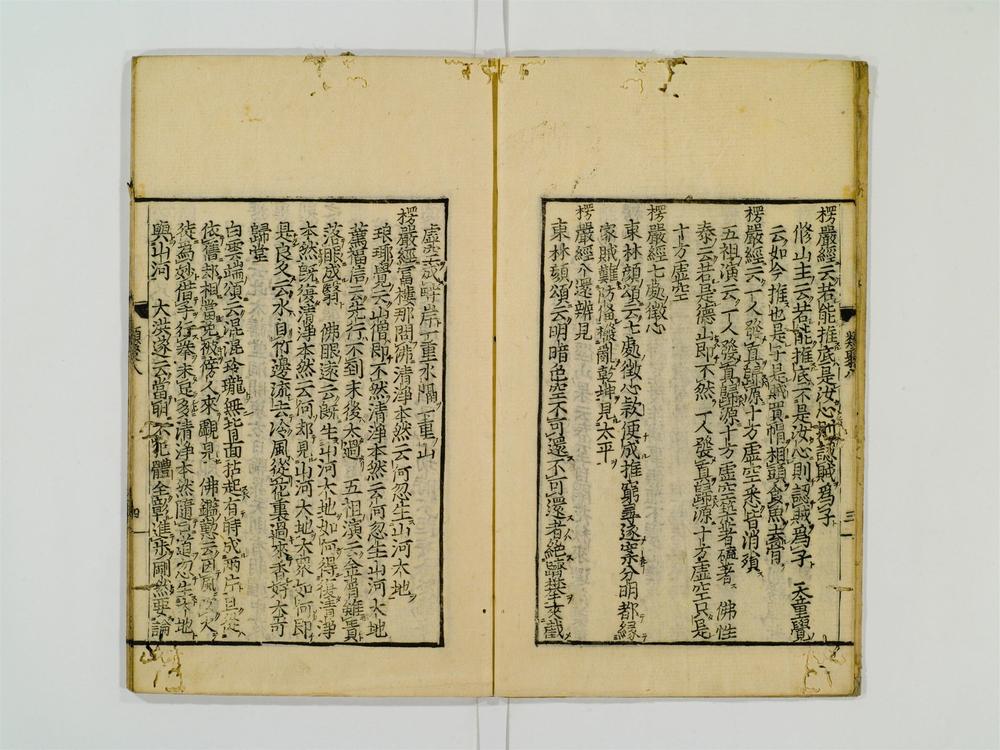 楞嚴經云若能推底是汝心則認賊爲子
修山主云若能推底不是汝心則認賊爲子　天童覺
云如今推也是子是賊買帽相頭食魚去骨
楞嚴經云一人發眞歸源十方虛空悉皆消殞
五祖演云一人發眞歸源十方虛空築著磕著　佛性
泰云若是德山即不然一人發眞歸源十方虛空只是
十方虛空
楞嚴經七處徵心
東林顏頌云七處徵心欵便成推窮尋逐案分明都緣
家賊難防備撥亂乾坤見太平
楞嚴經八還辨見
東林顏頌云明暗色空不可還不可還者絕躋攀夾截
虛空成兩岸一重水隔一重山
楞嚴經富樓那問佛清淨本然云何忽生山河大地
琅瑘覺云山僧即不然清淨本然云何忽生山河大地
薦福信云先行不到末後太過　五祖演云金屑雖貴
落眼成翳　佛眼遠云既生山河大地如何得復清淨
本然既復清淨本然云何却見山河大地大衆如何即
是良久云水自竹邊流去冷風從花裏過來香好大奇
歸堂
白雲端頌云混混玲瓏無背面拈起有時成兩片且從
依舊却相當免被傍人來覷見　佛鑑懃云因風吹火
徒爲妙借手行拳未足多清淨本然隨言道忽生大地
與山河　大洪遂云當明不犯體全彰進步剛然要論